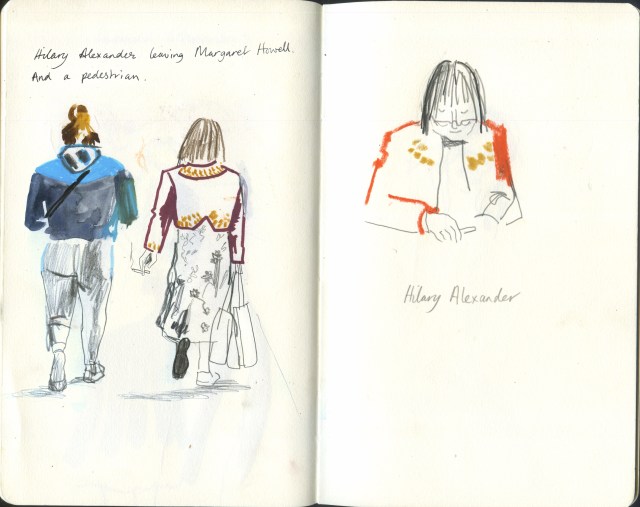 Hilary Alexander leaving Margaret Howell.
And a pedestrian.
Hilary Alexander